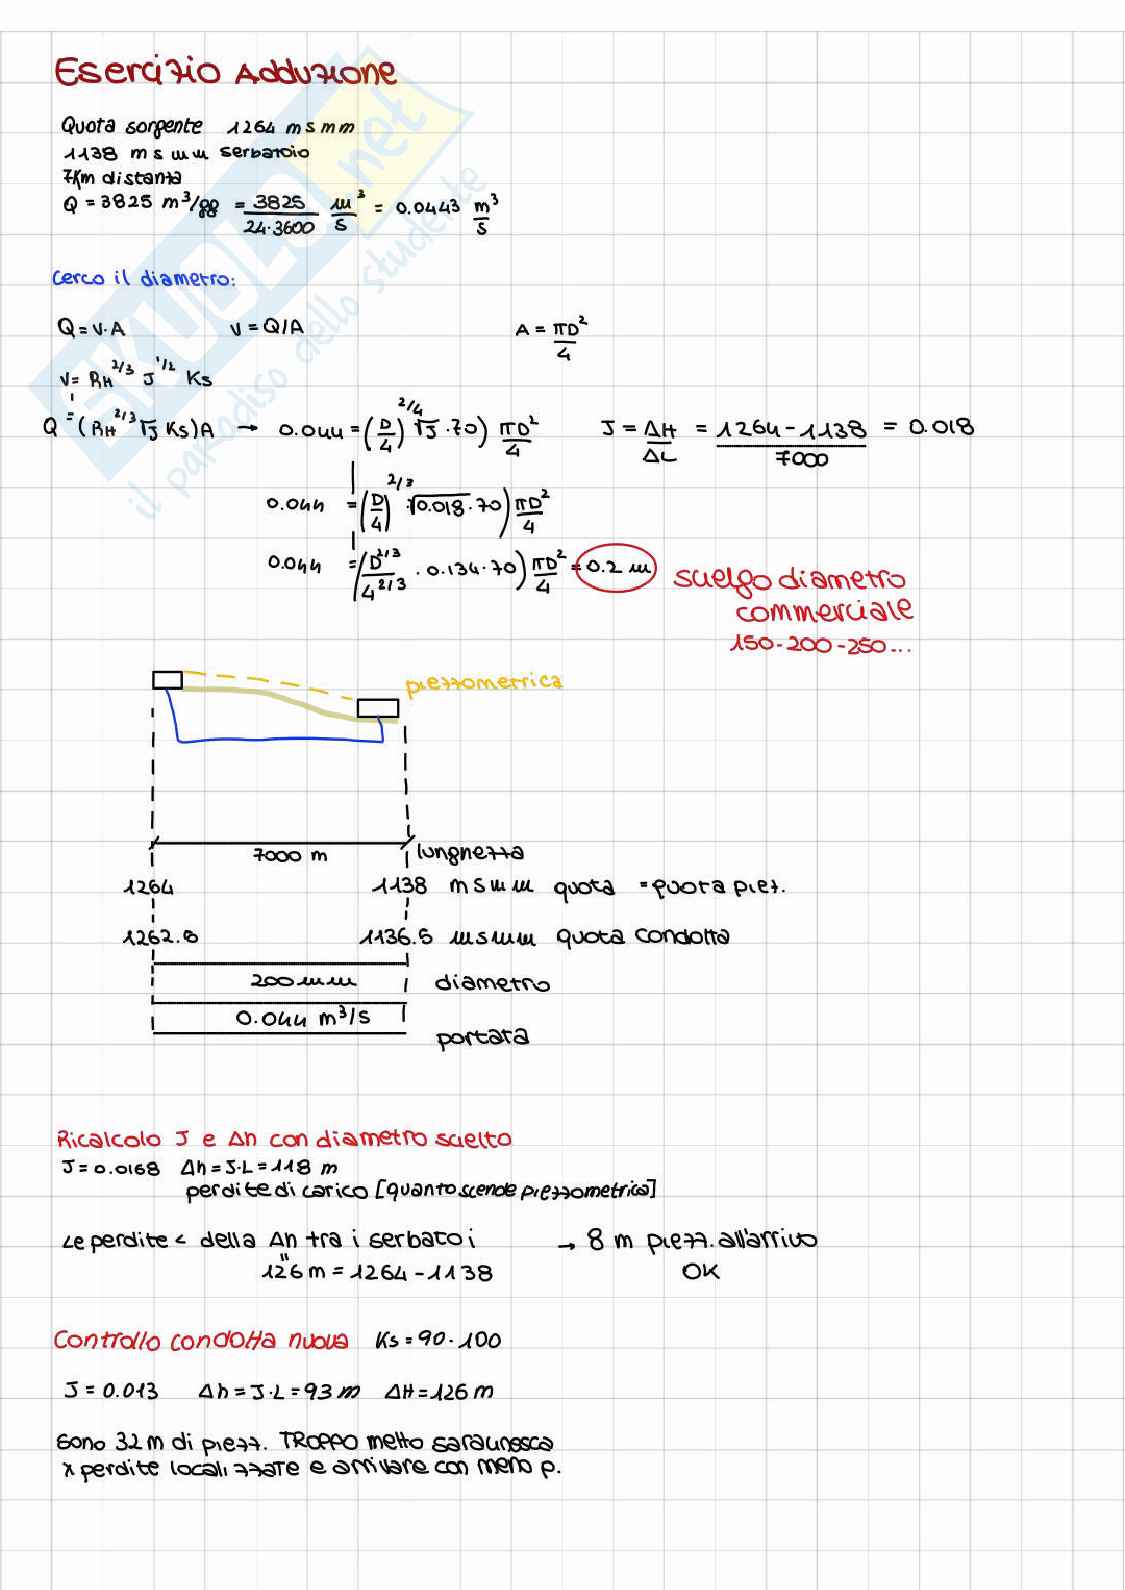 Esercizio Adduzione
Quota sorgente 1264 msmm
1138 msmm serbatoio
7Km distanza
Q = 3825 m³/gg = 3825/24·3600 m³/s = 0.0443 m³/s
Cerco il diametro:
Q = V·A V = Q/A A = πD²/4
V = RH^2/3 J^1/2 Ks
Q = (RH^2/3 √J Ks)A → 0.044 = (D/4)^2/4 √J·70) πD²/4 J = ΔH/ΔL = 1264-1138/7000 = 0.018
0.044 = (D/4)^2/3 √0.018·70) πD²/4
0.044 = (D^2/3/4^2/3 · 0.134·70) πD²/4 = 0.2 m
scelgo diametro
commerciale
150-200-250...
piezometrica
7000 m lunghezza
1264 1138 msmm quota = quota piez.
1262.8 1136.5 msmm quota condotta
200mm diametro
0.044 m³/s portata
Ricalcolo J e Δh con diametro scelto
J = 0.0168 Δh = J·L = 118 m
perdite di carico [quanto scende piezzometrica]
Le perdite < della Δh tra i serbatoi → 8 m piezz. all'arrivo
126m = 1264-1138 OK
Controllo condotta nuova Ks = 90·100
J = 0.013 Δh = J·L = 93 m ΔH = 126 m
sono 32m di piezz. TROPPO metto saracinesca
x perdite localizzate e arrivare con meno p.
SKUOLA.net
il paradiso dello studente